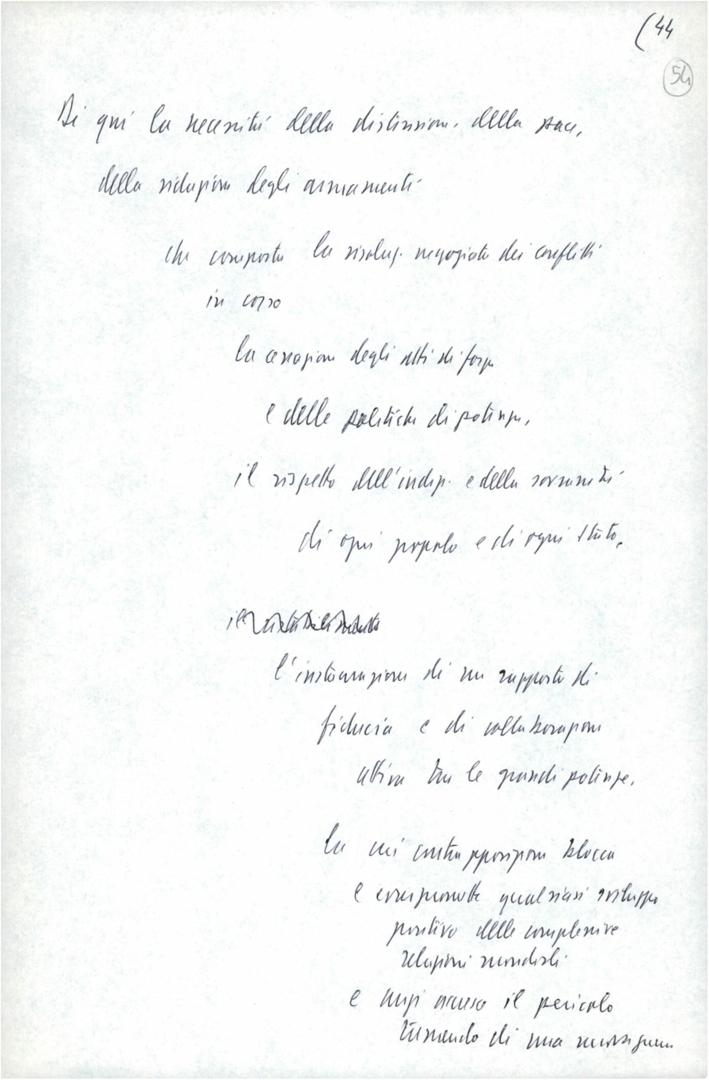 (44
54
Di qui la necessità della distensione, della pace,
della riduzione degli armamenti
che comporta la risoluz. negoziata dei conflitti
in corso
la cessazione degli atti di forza
e delle politiche di potenza,
il rispetto dell'indip. e della sovranità
di ogni popolo e di ogni Stato,
l'instaurazione di un rapporto di
fiducia e di collaborazione
attiva tra le grandi potenze,
la cui contrapposizione blocca
e compromette qualsiasi sviluppo
positivo delle complessive
relazioni mondiali
e anzi accresce il pericolo
tremendo di una nuova guerra